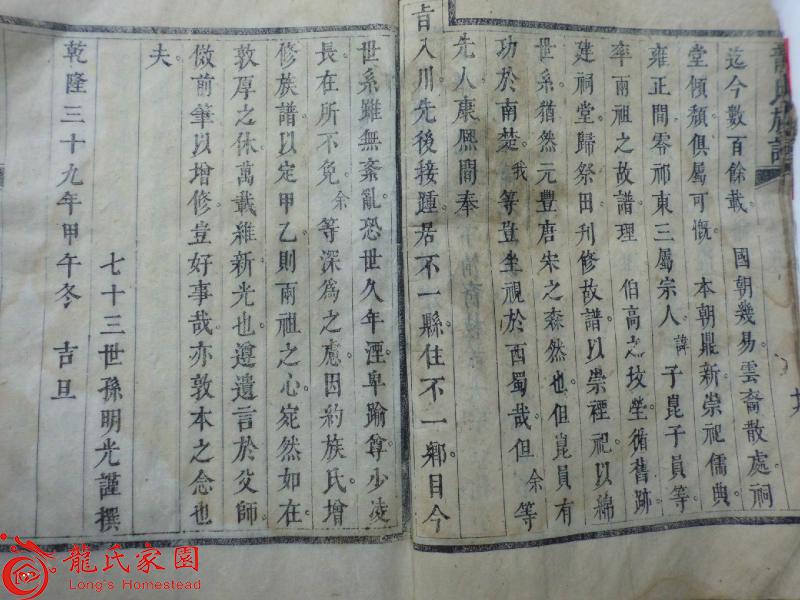 龍氏族譜
迄今數百餘載。國朝幾易。雲裔散處。祠
堂傾頹。俱屬可慨。本朝鼎新。崇祀儒典。
雍正間。零祁東三屬宗人。諱子崑子員等
率兩祖之故譜。理伯高之坟塋。循舊跡。
建祠堂。歸祭田。刊修故譜。以崇禋祀。以綿
世系。猶然元豐唐宋之森然也。但崑員有
功於南楚。我等豈坐視於西蜀哉。但余等
先人康熈間奉
旨入川。先後接踵。居不一縣。住不一鄉。目今
世系雖無紊亂。恐世久年湮。卑踰尊。少凌
長。在所不免。余等深為之慮。因約族氏。增
修族譜。以定甲乙。則兩祖之心。宛然如在。
敦厚之休。萬載維新光也。遵遺言於父師。
倣前筆以增修。豈好事哉。亦敦本之念也
夫。
七十三世孫明光謹撰
乾隆三十九年甲午冬吉旦
龍氏家園
Long's Homestead